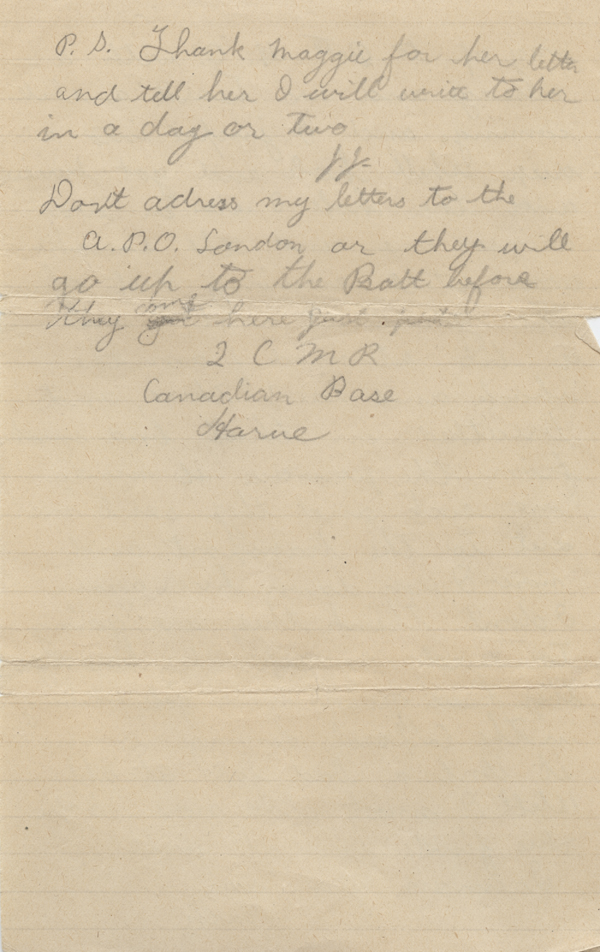 P.S. Thank Maggie for her letter
and tell her I will write to her
in a day or two
J.J.
Don't adress my letters to the
A.P.O. London or they will
go up to the Batt before
they come here just put
2 C M R
Canadian Base
Harve